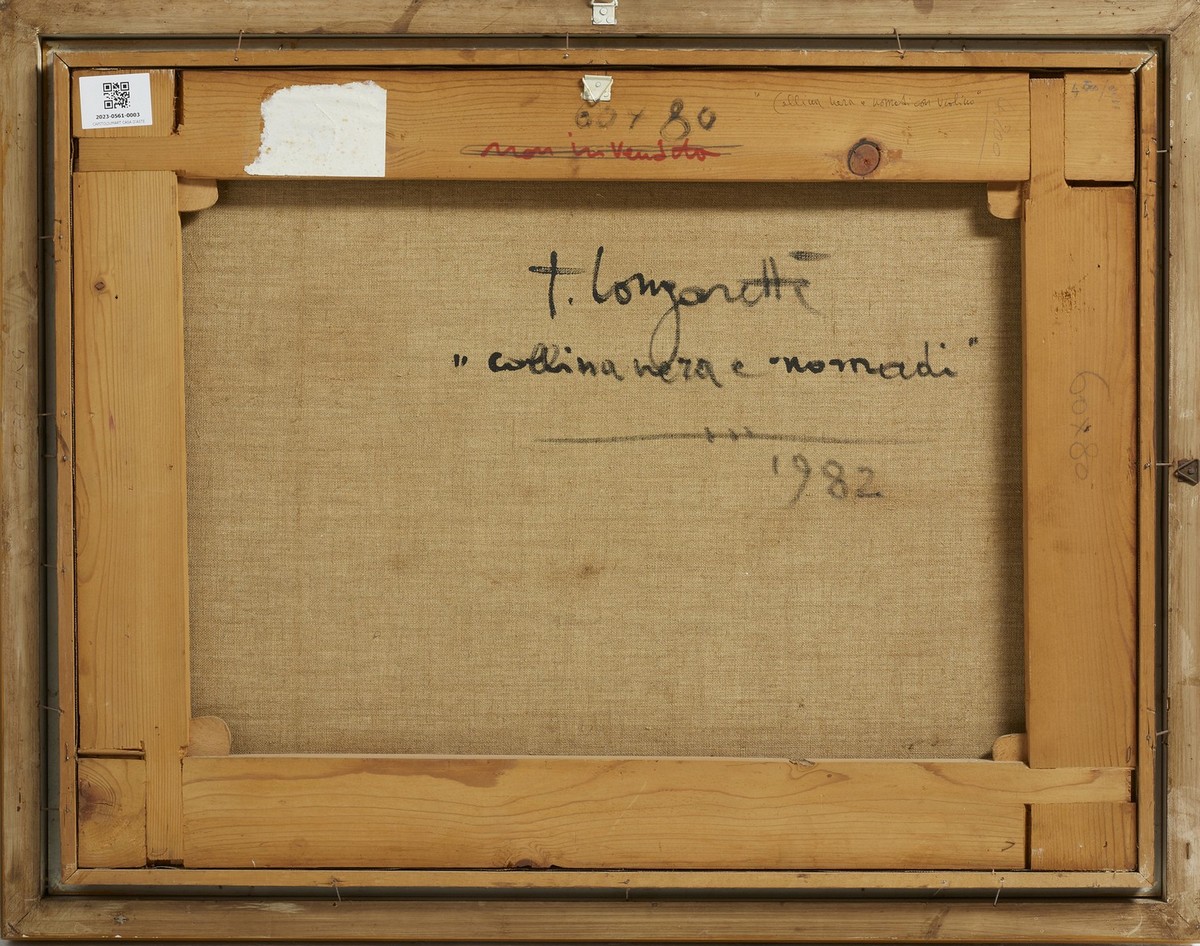 2023-0561-0003
60 x 80
non in vendita
"Collina nera e nomadi con violino"
T. Longaretti
"collina nera e nomadi"
1982
60 x 80